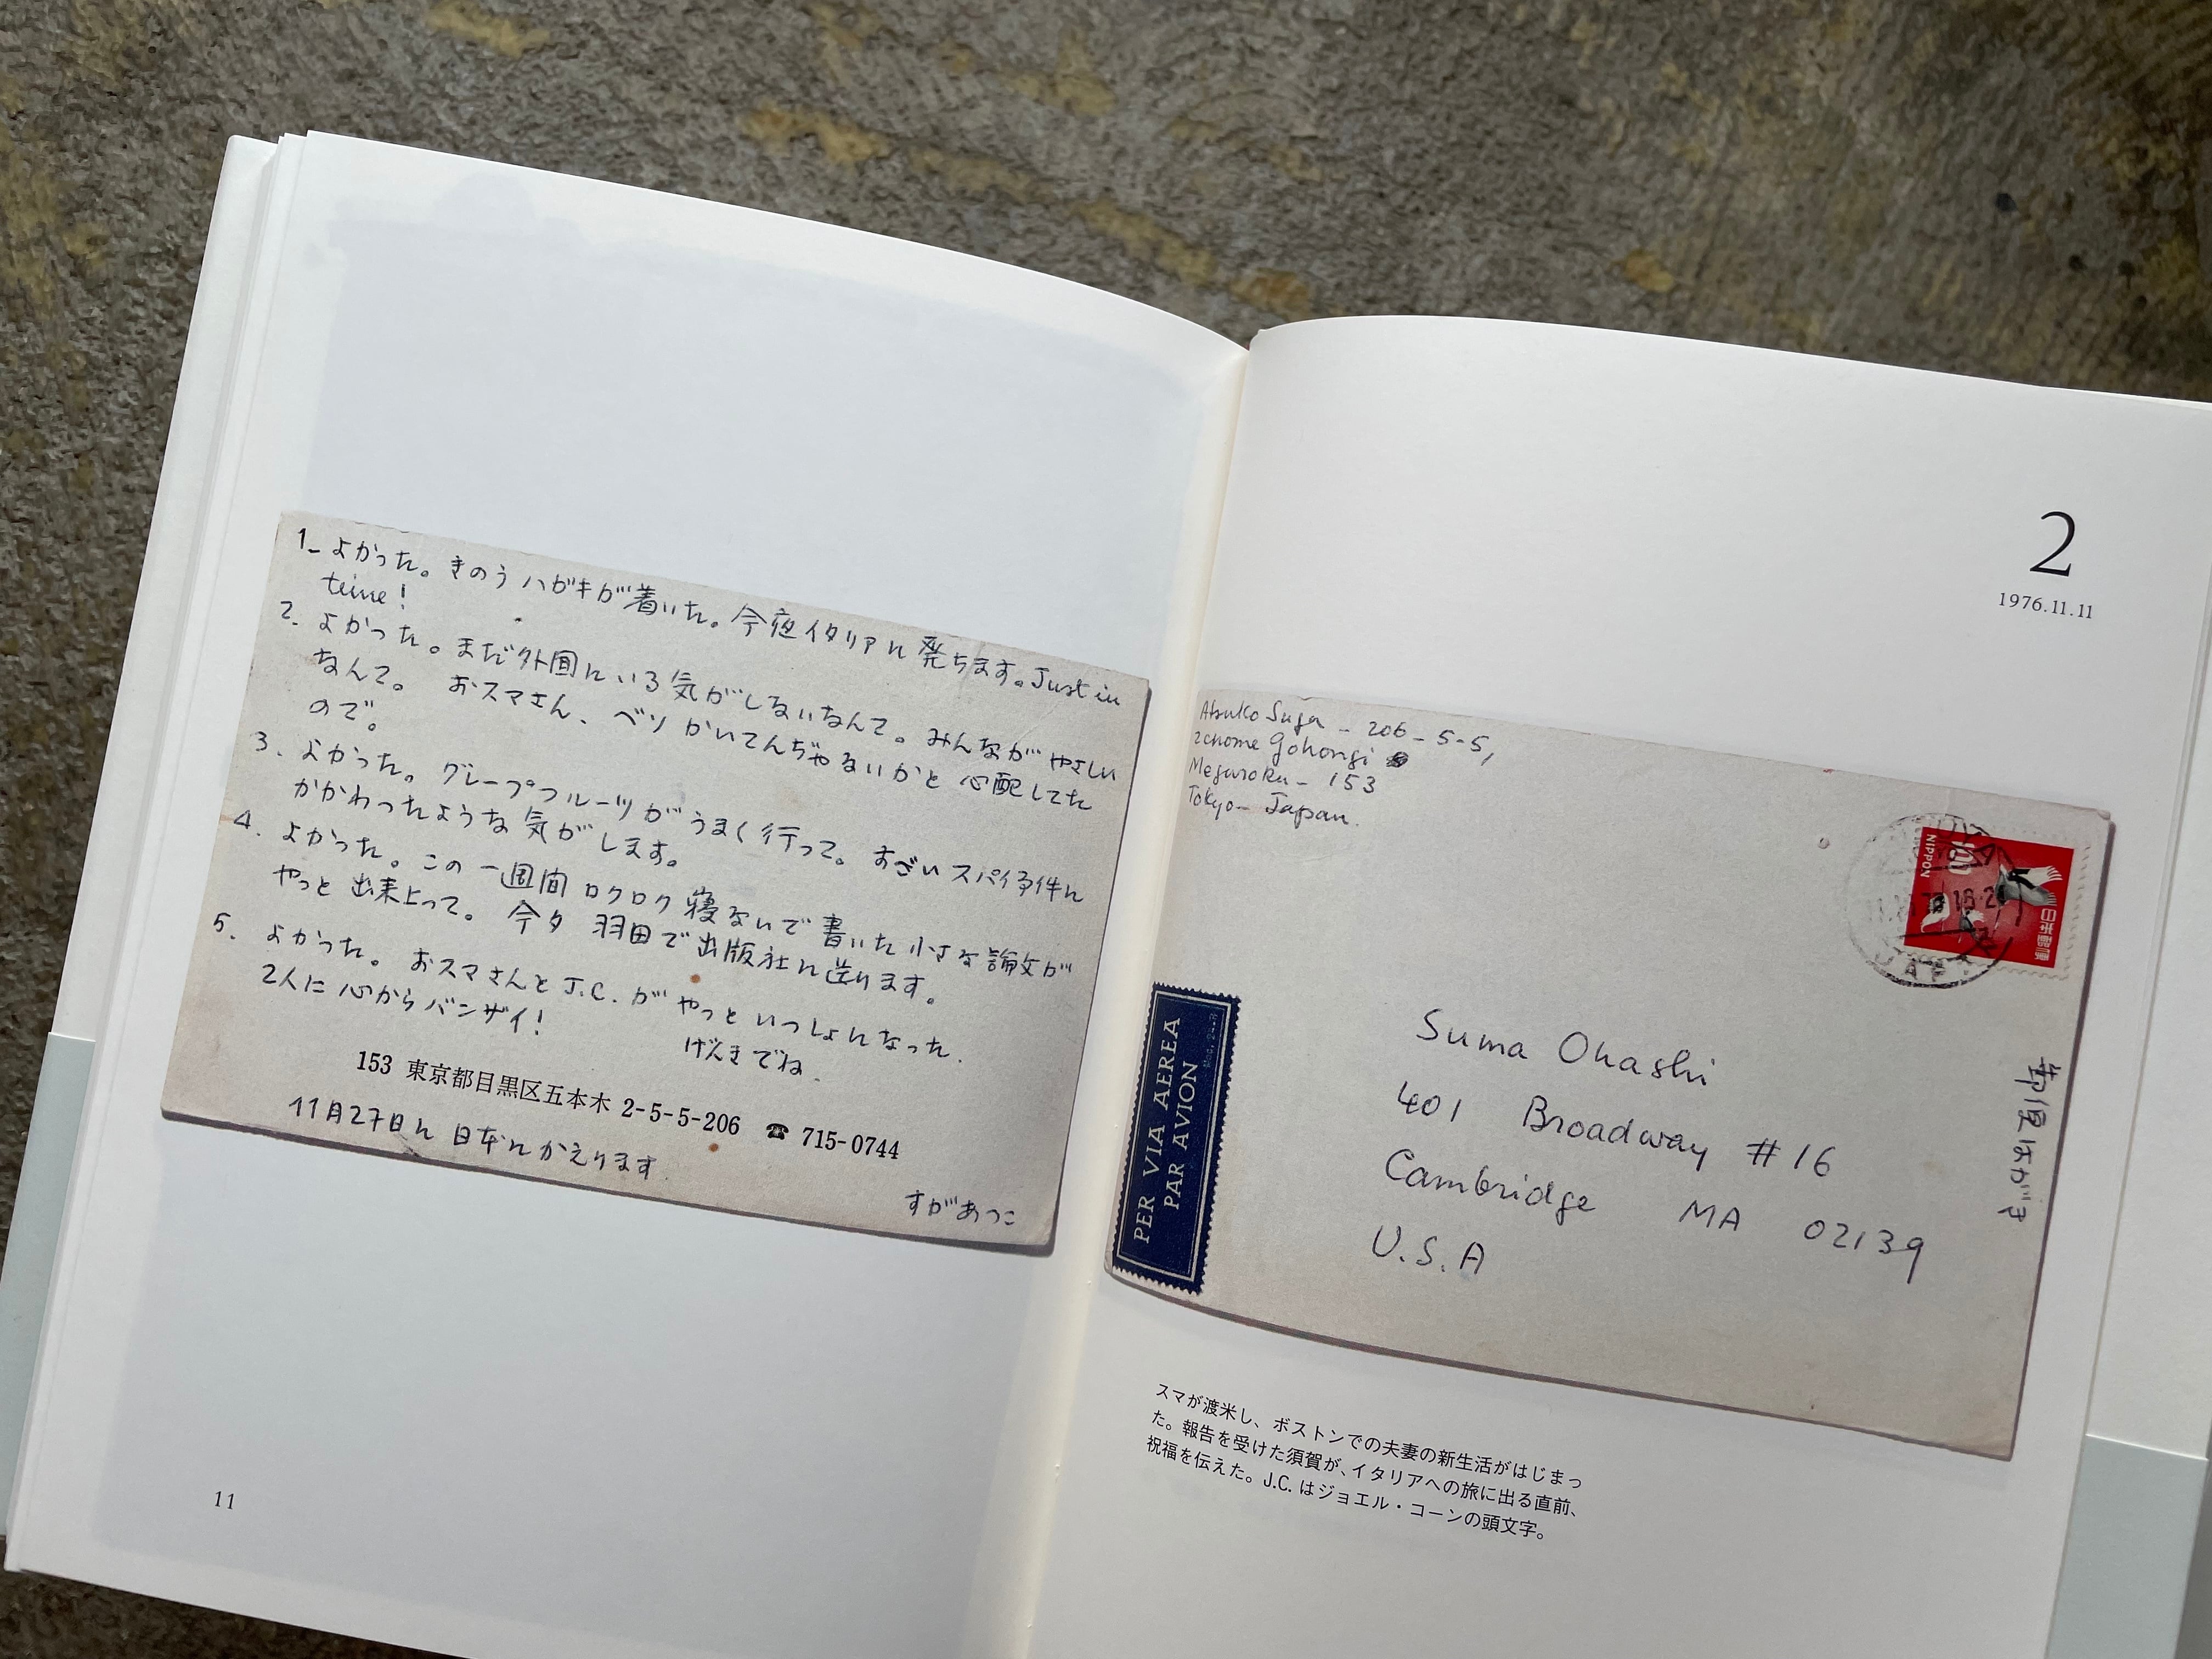 1_ よかった。きのうハガキが着いた。今夜イタリアに発ちます。Just in
time!
2. よかった。まだ外国にいる気がしないなんて。みんながやさしい
なんて。 おスマさん、ベソかいてんぢゃないかと心配してた
ので。
3. よかった。グレープフルーツがうまく行って。すごいスパイ事件に
かかわったような気がします。
4. よかった。この一週間ロクロク寝ないで書いた小さな論文が
やっと出来上って。今夕羽田で出版社に送ります。
5. よかった。おスマさんとJ.C.がやっといっしょになった.
2人に心からバンザイ!
げんきでね.
153 東京都目黒区五本木 2-5-5-206 ☎ 715-0744
11月27日に日本にかえります
すがあつこ
11
2
1976.11.11
Atsuko Suga - 206-5-5,
2chome Gohongi
Meguroku - 153
Tokyo - Japan.
NIPPON
日本郵便
Suma Ohashi
401 Broadway #16
Cambridge MA 02139
U.S.A
郵便はがき
PER VIA AEREA
PAR AVION
スマが渡米し、ボストンでの夫妻の新生活がはじまっ
た。報告を受けた須賀が、イタリアへの旅に出る直前、
祝福を伝えた。J.C.はジョエル・コーンの頭文字。